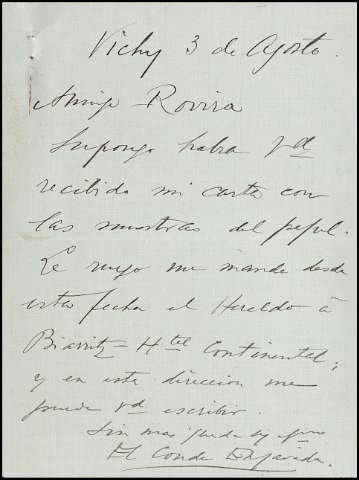 Vichy 3 de Agosto.
Amigo Rovira
Supongo habra Vd
recibido mi carta con
las muestras del papel.
Le ruego me mande desde
esta fecha el Heraldo á
Biarritz - Htel Continental;
y en esta direccion me
puede Vd escribir.
Sin mas queda
El Conde